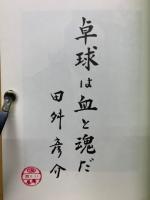 卓球は血と魂だ
田舛彦介